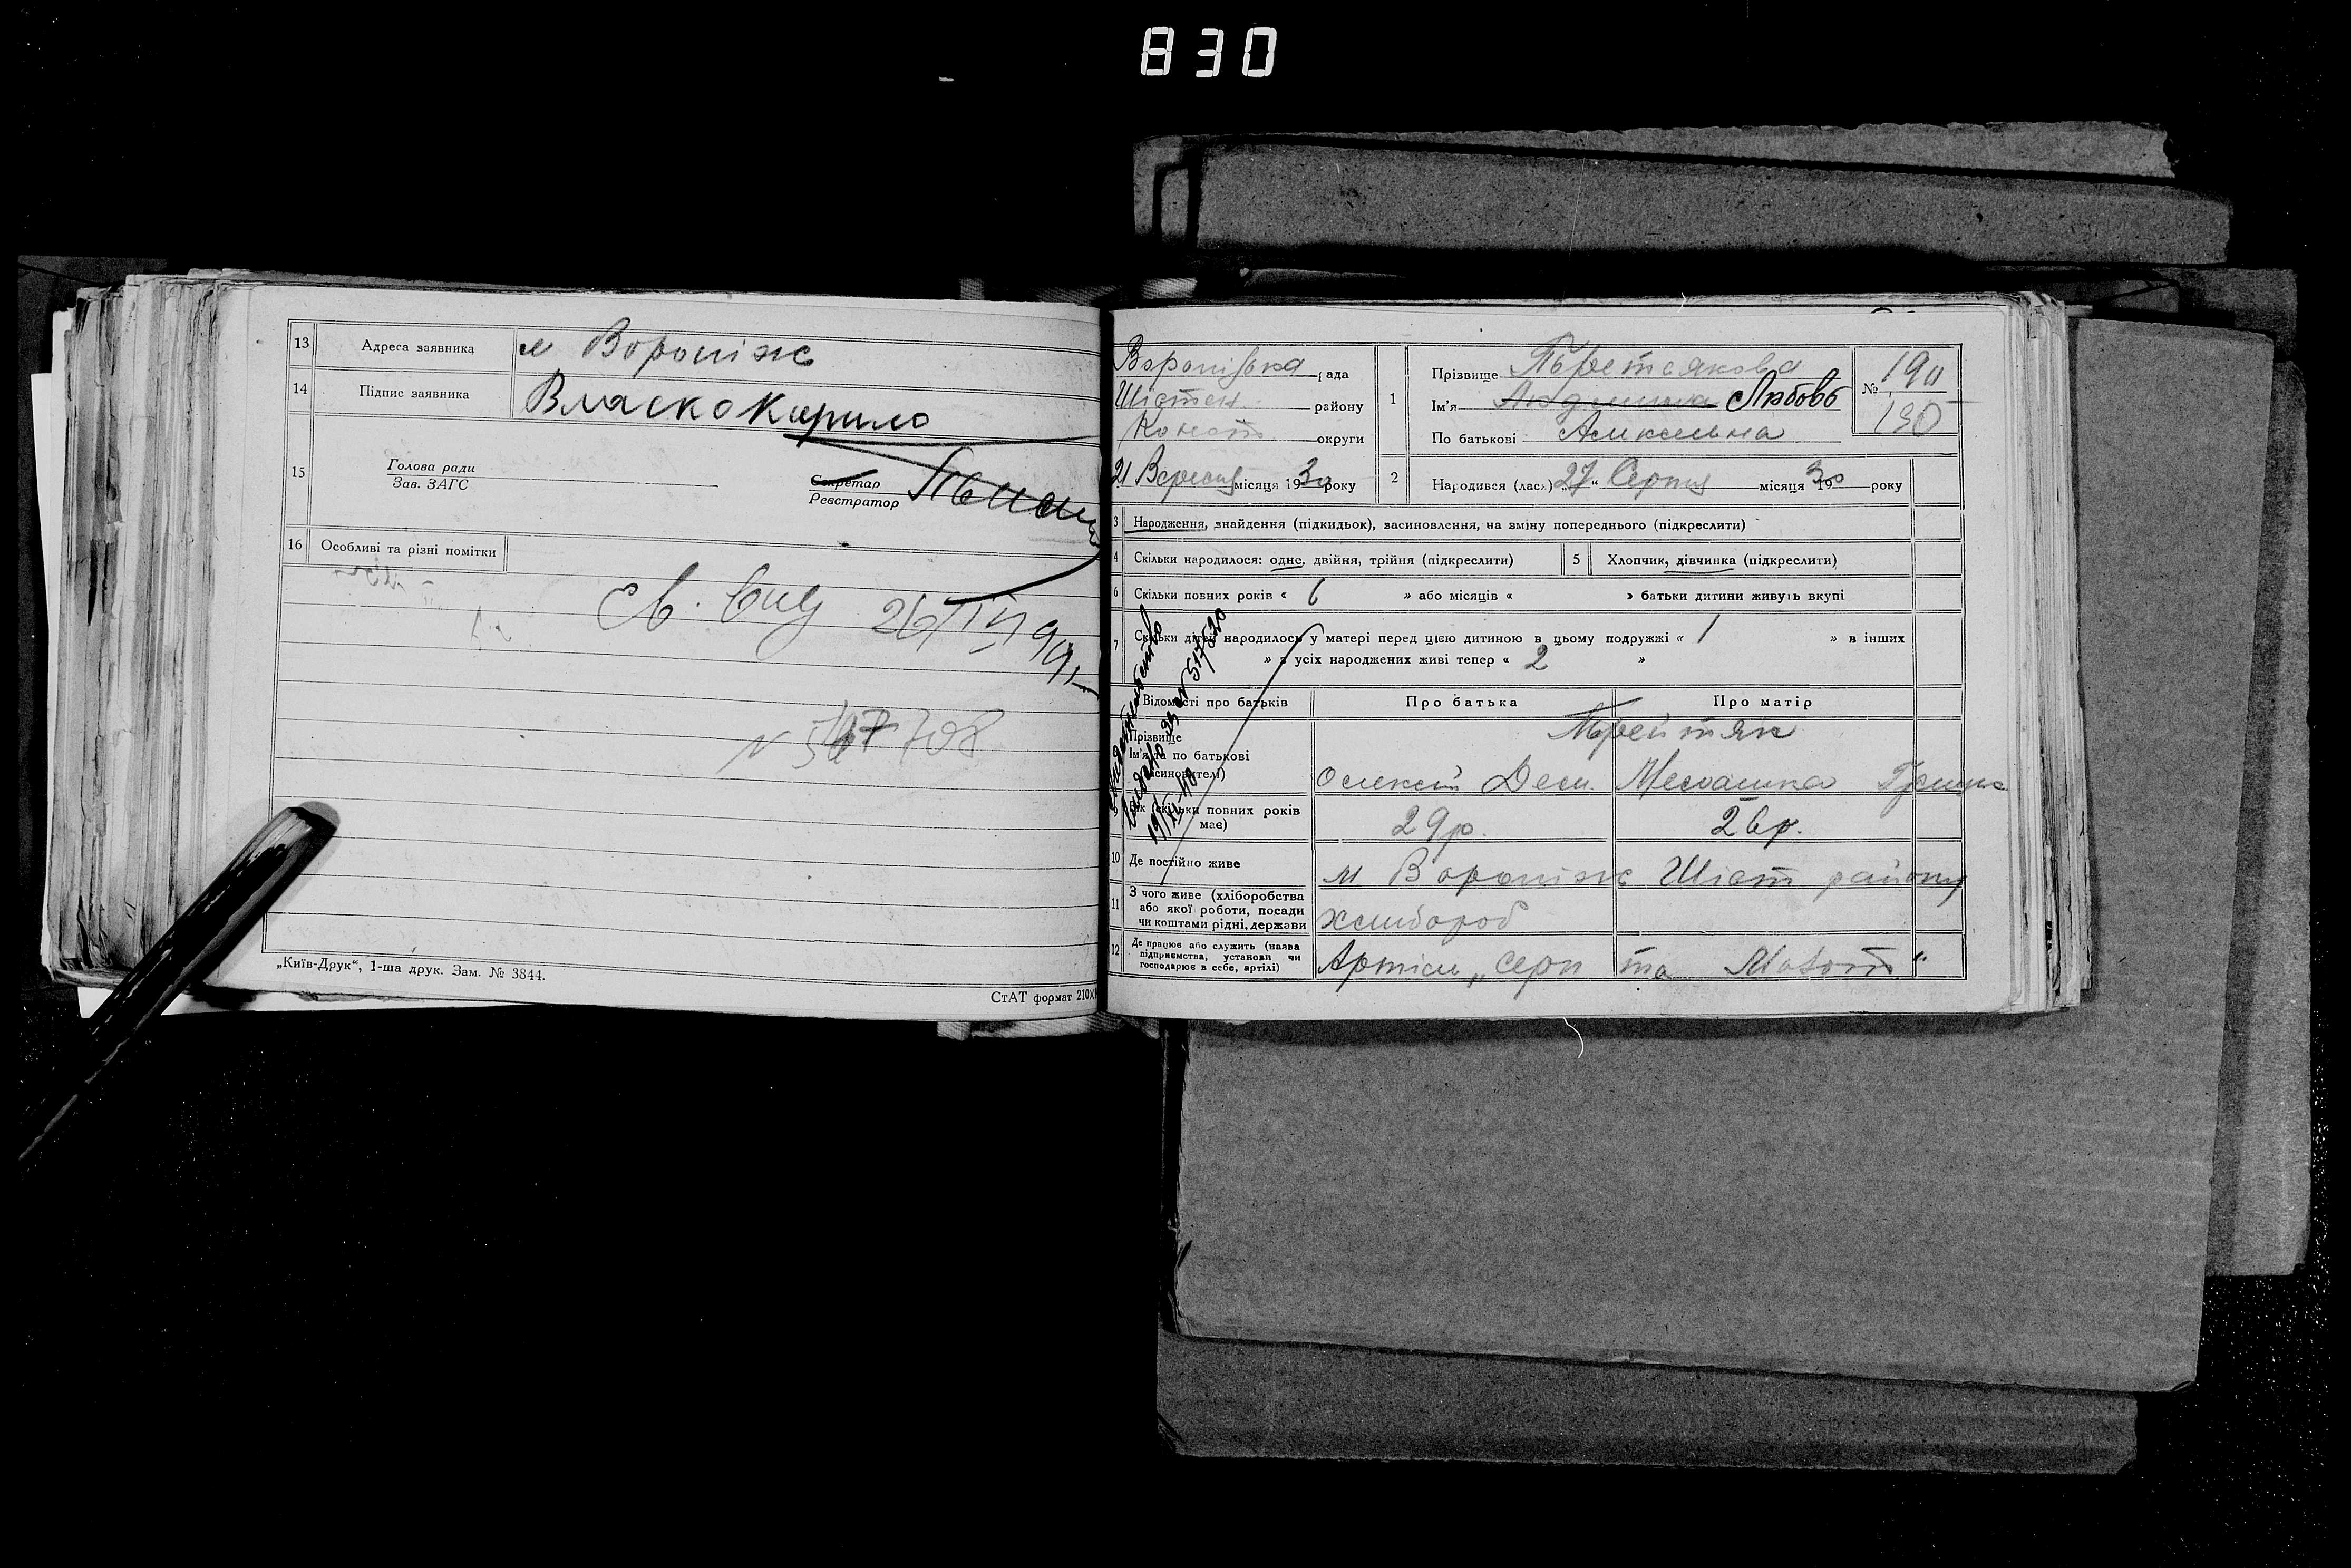 830
13 Адреса заявника м Вороніж
14 Підпис заявника Власко Кирило
15 Голова ради
Зав. ЗАГС
Секретар
Реєстратор
16 Особливі та різні помітки
Св. вид 26/
N 708
„Київ-Друк“, 1-ша друк. Зам. № 3844.
СтАТ формат 210X
Вороніська рада
Шістен району
Коност округи
21 Вересня місяця 1930 року
1 Прізвище
Ім'я Людмила Любовь
По батькові
№ 190
190
2 Народився (лась) „27“ Серпня місяця 1930 року
3 Народження, знайдення (підкидьок), засиновлення, на зміну попереднього (підкреслити)
4 Скільки народилося: одне, двійня, трійня (підкреслити) 5 Хлопчик, дівчинка (підкреслити)
6 Скільки повних років « 6 » або місяців « » батьки дитини живуть вкупі
7 Скільки дітей народилось у матері перед цією дитиною в цьому подружжі « 1 » в інших
» з усіх народжених живі тепер « 2 »
Відомості про батьків Про батька Про матір
Прізвище
Ім'я та по батькові
29р. 26р.
9 Вік (скільки повних років
має)
10 Де постійно живе м Вороніж Шіст району
11 З чого живе (хліборобства
або якої роботи, посади
чи коштами рідні, держави хлибороб
12 Де працює або служить (назва
підприємства, установи чи
господарює в себе, артілі) Артіль „Серп та Молот“